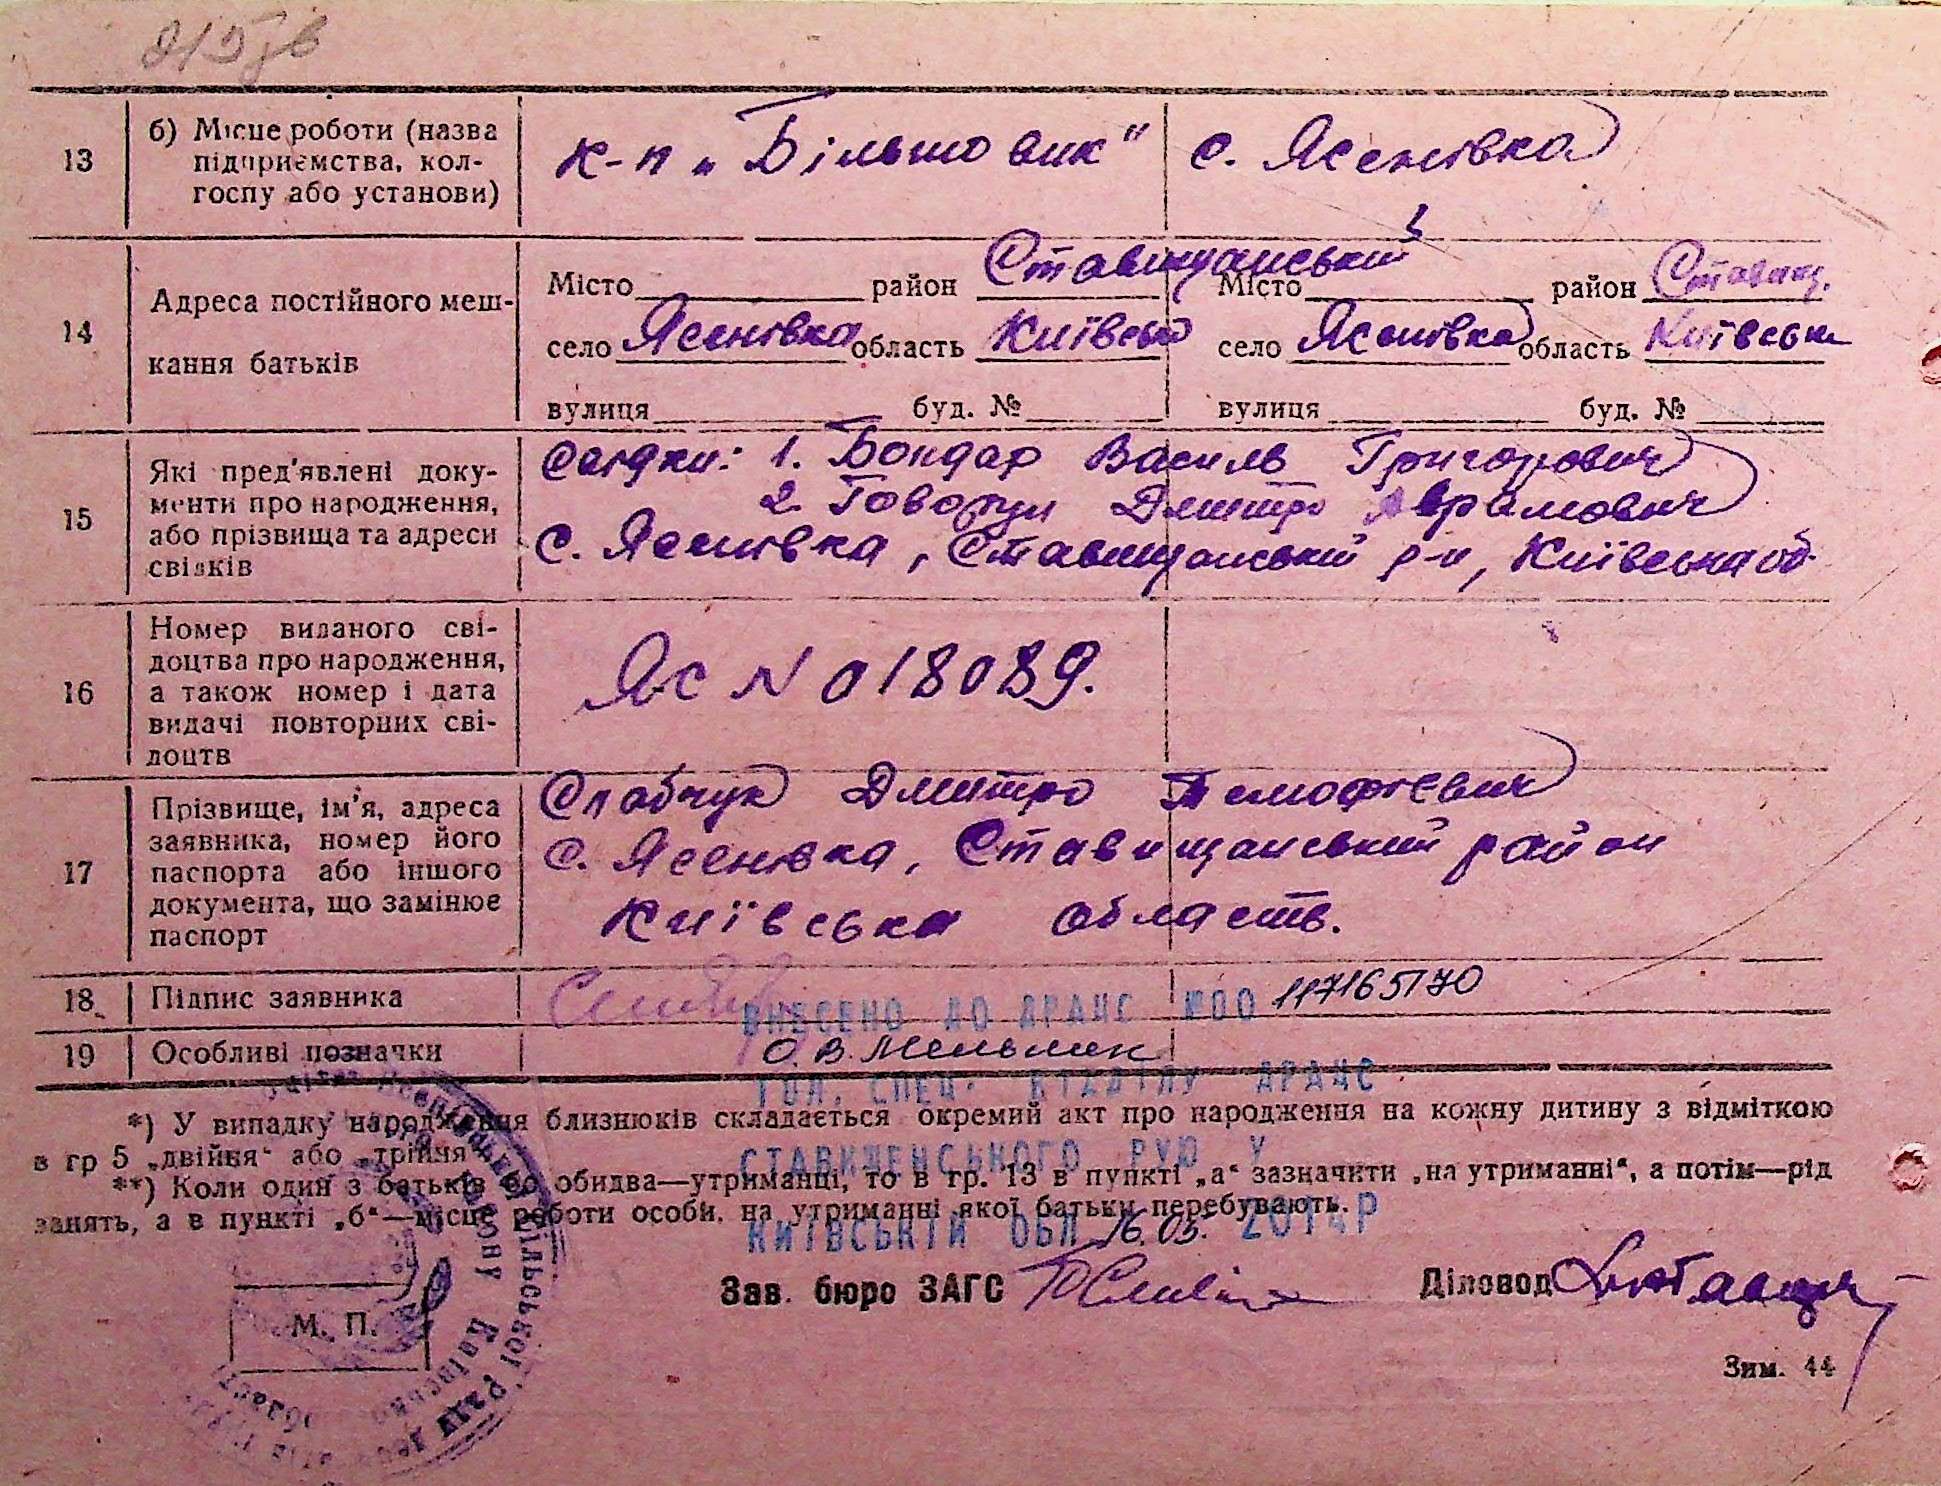 13
б) Місце роботи (назва
підприємства, кол-
госпу або установи)
к-п „Більшовик"
с. Ясенівка
14
Адреса постійного меш-
кання батьків
Місто район Ставищанський
село Ясенівка область Київськ
вулиця буд. №
Місто район Ставищ.
село Ясенівка область Київськ
вулиця буд. №
15
Які пред'явлені доку-
менти про народження,
або прізвища та адреси
свідків
Свідки: 1. Бондар Василь Григорович
2. Говорун Дмитро Аврамович
с. Ясенівка, Ставищанський р-н, Київська об.
16
Номер виданого сві-
доцтва про народження,
а також номер і дата
видачі повторних сві-
доцтв
ЯС N 018089.
17
Прізвище, ім'я, адреса
заявника, номер його
паспорта або іншого
документа, що замінює
паспорт
Слабчук Дмитро Темофієвич
с. Ясенівка, Ставищанський район
Київська область.
18
Підпис заявника
ВНЕСЕНО ДО ДРАЦС №00 117165170
19
Особливі позначки
О.В. Мельник
ГОЛ. СПЕЦ. ВІДДІЛУ ДРАЦС
*) У випадку народження близнюків складається окремий акт про народження на кожну дитину з відміткою
в гр 5 „двійня“ або „трійня“
СТАВИЩЕНСЬКОГО РУЮ У
**) Коли один з батьків або обидва—утриманці, то в гр. 13 в пункті „а“ зазначити „на утриманні“, а потім—рід
занять, а в пункті „б“—місце роботи особи, на утриманні якої батьки перебувають.
КИЇВСЬКІЙ ОБЛ 16.05. 2014Р
Зав. бюро ЗАГС
Діловод
М. П.
Зим. 44